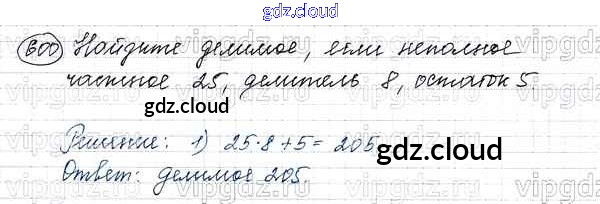 gdz.cloud
600 Найдите делимое, если неполное
частное 25, делитель 8, остаток 5.
gdz.cloud
Решение: 1) 25·8+5= 205
gdz.cloud
Ответ: делимое 205.